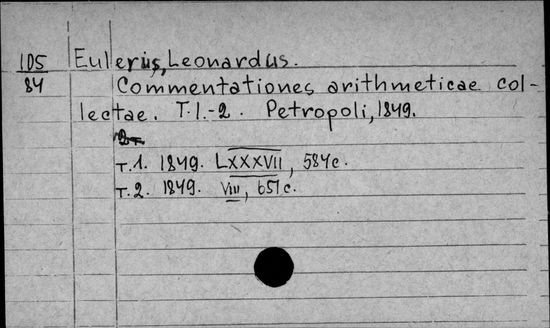 105 Eulerus, Leonardus.
84 Commentationes arithmeticae col-
lectae. T.1.-2. Petropoli, 1849.
т.1. 1849. LXXXVII, 584c.
т.2. 1849. VIII, 651c.